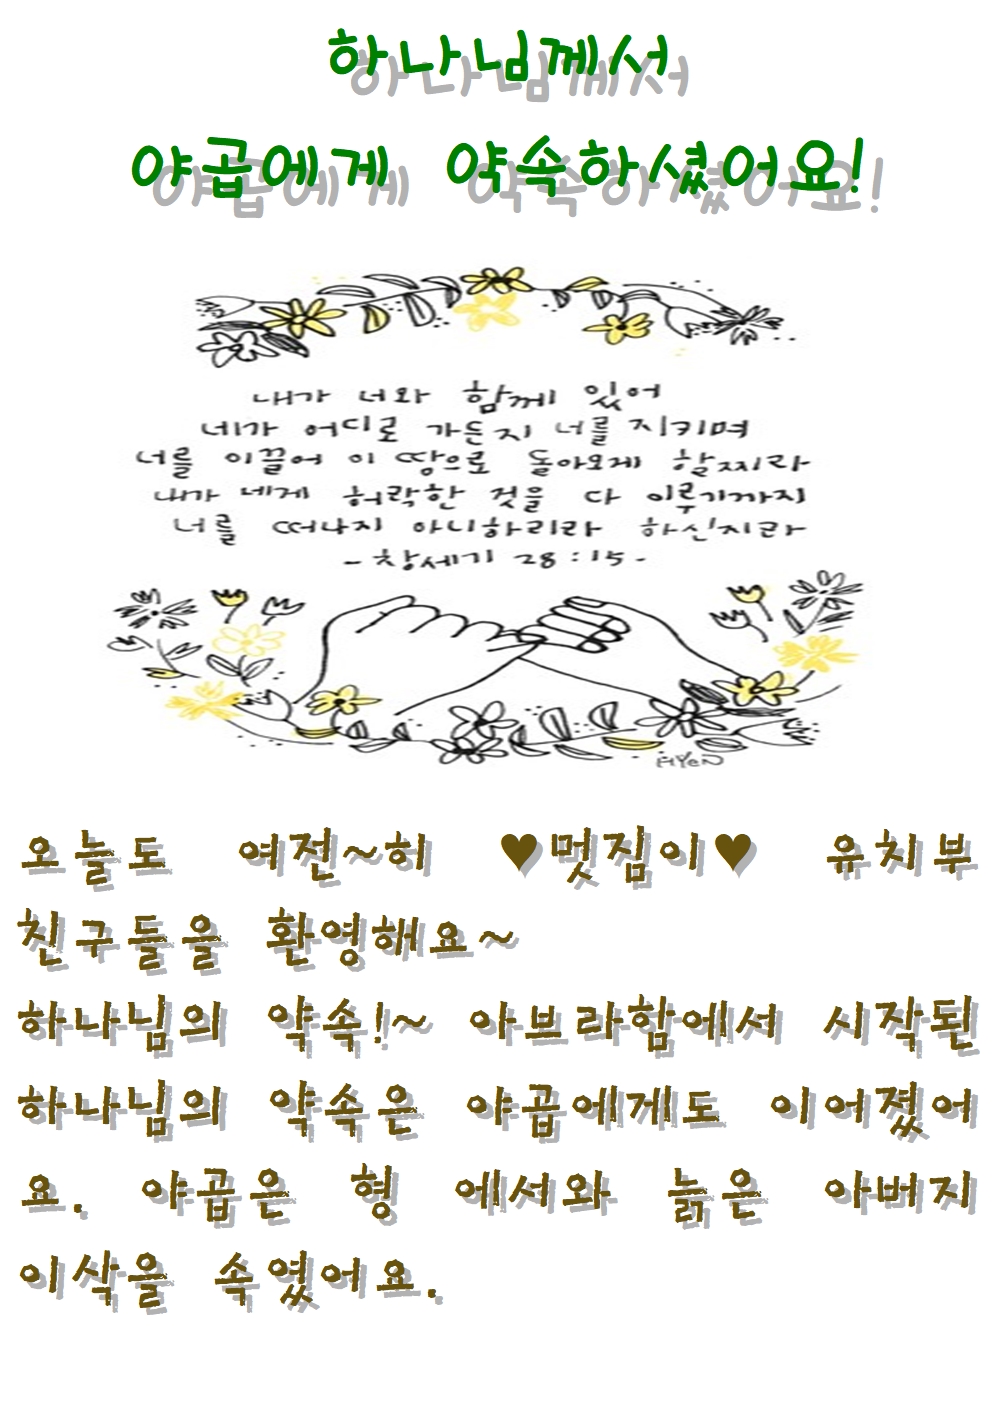 하나님께서
야곱에게 약속하셨어요!
내가 너와 함께 있어
네가 어디로 가든지 너를 지키며
너를 이끌어 이 땅으로 돌아오게 할찌라
내가 네게 허락한 것을 다 이루기까지
너를 떠나지 아니하리라 하신지라
-창세기 28:15-
HYeN
오늘도 여전~히 ♥멋짐이♥ 유치부
친구들을 환영해요~
하나님의 약속!~ 아브라함에서 시작된
하나님의 약속은 야곱에게도 이어졌어
요. 야곱은 형 에서와 늙은 아버지
이삭을 속였어요.